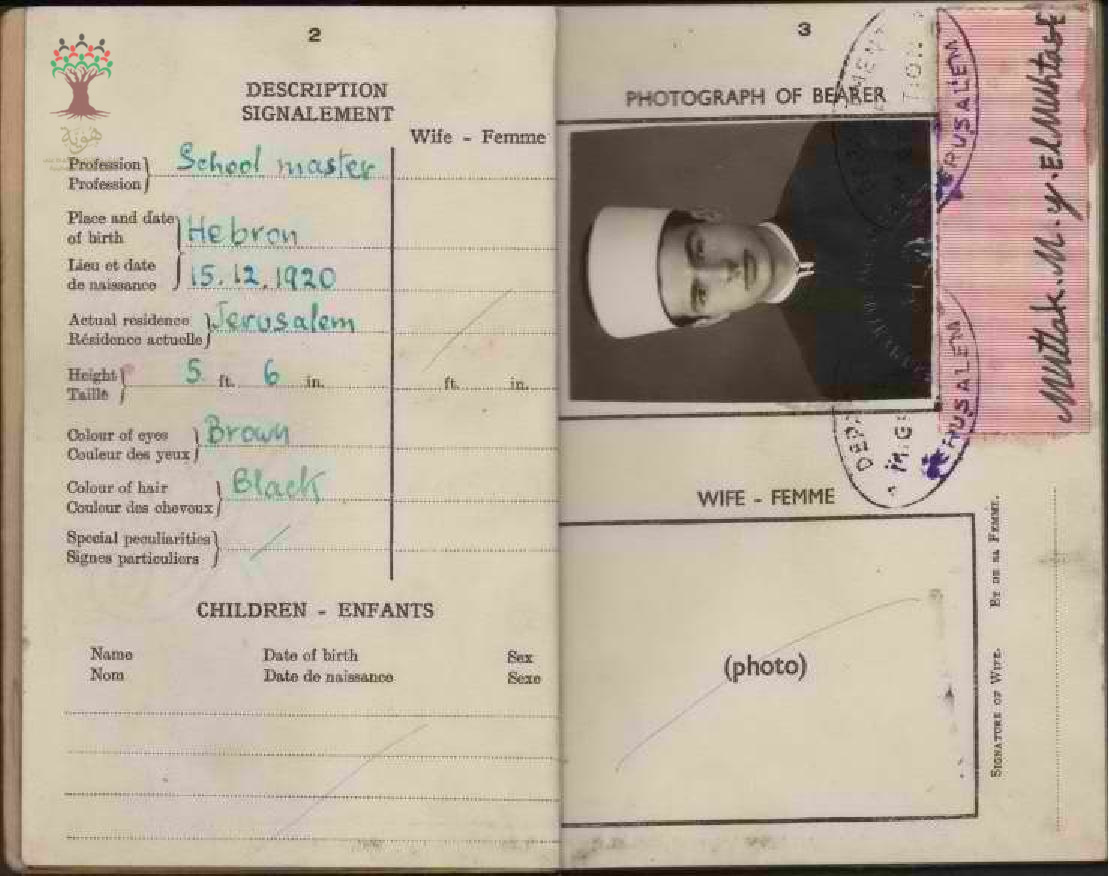 2
DESCRIPTION
SIGNALEMENT
Wife - Femme
Profession School master
Profession
Place and date of birth Hebron
Lieu et date de naissance 15.12.1920
Actual residence Jerusalem
Résidence actuelle
Height 5 ft. 6 in. ft. in.
Taille
Colour of eyes Brown
Couleur des yeux
Colour of hair Black
Couleur des cheveux
Special peculiarities
Signes particuliers
CHILDREN - ENFANTS
Name Date of birth Sex
Nom Date de naissance Sexe
هوية
3
PHOTOGRAPH OF BEARER
JERUSALEM
JERUSALEM
Muttlak.M.y.ElMuhtaseb
WIFE - FEMME
(photo)
SIGNATURE OF WIFE. ET DE SA FEMME.